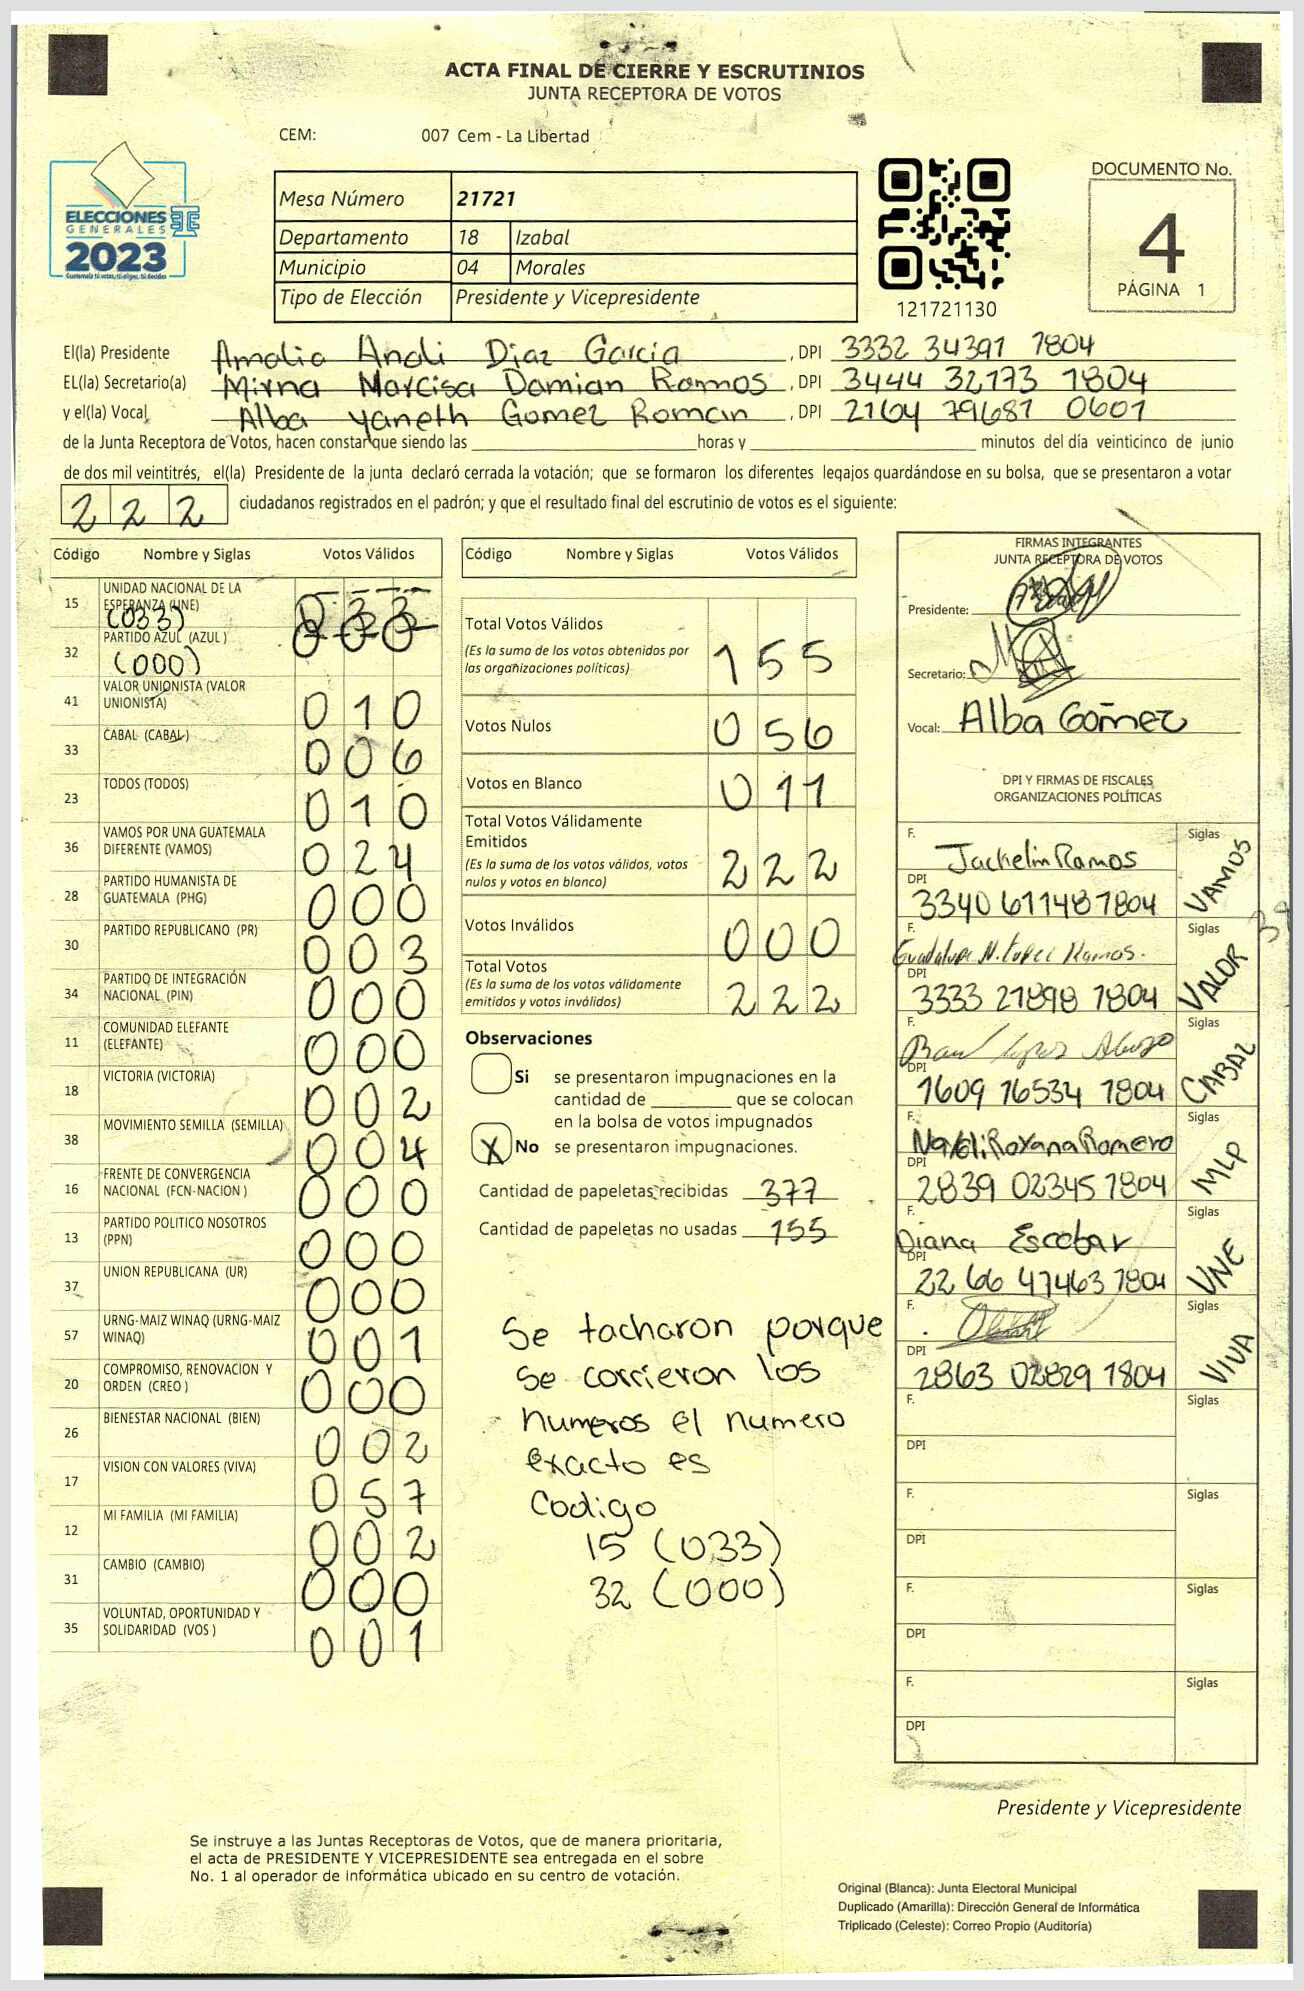 ACTA FINAL DE CIERRE Y ESCRUTINIOS
JUNTA RECEPTORA DE VOTOS
CEM: 007 Cem - La Libertad
ELECCIONES
GENERALES
2023
Guatemala tú votas, tú eliges, tú decides
Mesa Número 21721
Departamento 18 Izabal
Municipio 04 Morales
Tipo de Elección Presidente y Vicepresidente
121721130
DOCUMENTO No.
4
PÁGINA 1
El(la) Presidente Amalia Anali Diaz Garcia , DPI 3332 34391 1804
EL(la) Secretario(a) Mirna Marcisa Damian Ramos , DPI 3444 32173 1804
y el(la) Vocal Alba Yaneth Gomez Roman , DPI 2164 79681 0601
de la Junta Receptora de Votos, hacen constar que siendo las horas y minutos del día veinticinco de junio
de dos mil veintitrés, el(la) Presidente de la junta declaró cerrada la votación; que se formaron los diferentes legajos guardándose en su bolsa, que se presentaron a votar
222 ciudadanos registrados en el padrón; y que el resultado final del escrutinio de votos es el siguiente:
Código Nombre y Siglas Votos Válidos
15 UNIDAD NACIONAL DE LA
ESPERANZA (UNE) 033
(033)
32 PARTIDO AZUL (AZUL ) 000
(000)
41 VALOR UNIONISTA (VALOR
UNIONISTA) 010
33 CABAL (CABAL ) 006
23 TODOS (TODOS) 010
36 VAMOS POR UNA GUATEMALA
DIFERENTE (VAMOS) 024
28 PARTIDO HUMANISTA DE
GUATEMALA (PHG) 000
30 PARTIDO REPUBLICANO (PR) 003
34 PARTIDO DE INTEGRACIÓN
NACIONAL (PIN) 000
11 COMUNIDAD ELEFANTE
(ELEFANTE) 000
18 VICTORIA (VICTORIA) 002
38 MOVIMIENTO SEMILLA (SEMILLA) 004
16 FRENTE DE CONVERGENCIA
NACIONAL (FCN-NACION ) 000
13 PARTIDO POLITICO NOSOTROS
(PPN) 000
37 UNION REPUBLICANA (UR) 000
57 URNG-MAIZ WINAQ (URNG-MAIZ
WINAQ) 001
20 COMPROMISO, RENOVACION Y
ORDEN (CREO ) 000
26 BIENESTAR NACIONAL (BIEN) 002
17 VISION CON VALORES (VIVA) 057
12 MI FAMILIA (MI FAMILIA) 002
31 CAMBIO (CAMBIO) 000
35 VOLUNTAD, OPORTUNIDAD Y
SOLIDARIDAD (VOS ) 001
Código Nombre y Siglas Votos Válidos
Total Votos Válidos
(Es la suma de los votos obtenidos por
las organizaciones políticas) 155
Votos Nulos 056
Votos en Blanco 011
Total Votos Válidamente
Emitidos
(Es la suma de los votos válidos, votos
nulos y votos en blanco) 222
Votos Inválidos 000
Total Votos
(Es la suma de los votos válidamente
emitidos y votos inválidos) 222
Observaciones
Si se presentaron impugnaciones en la
cantidad de que se colocan
en la bolsa de votos impugnados
X No se presentaron impugnaciones.
Cantidad de papeletas recibidas 377
Cantidad de papeletas no usadas 155
Se tacharon porque
se corrieron los
numeros el numero
exacto es
Codigo
15 (033)
32 (000)
FIRMAS INTEGRANTES
JUNTA RECEPTORA DE VOTOS
Presidente:
Secretario:
Vocal: Alba Gómez
DPI Y FIRMAS DE FISCALES
ORGANIZACIONES POLÍTICAS
F. Jackelin Ramos Siglas VAMOS
DPI 3340 61148 1804
F. Guadalupe N. Lopez Ramos. Siglas VALOR
DPI 3333 21898 1804
F. Siglas CABAL
DPI 1609 16534 1804
F. Nayeli Roxana Romero Siglas MLP
DPI 2839 02345 1804
F. Diana Escobar Siglas UNE
DPI 2266 47463 1804
F. Siglas VIVA
DPI 2863 02829 1804
F. Siglas
DPI
F. Siglas
DPI
F. Siglas
DPI
F. Siglas
DPI
Presidente y Vicepresidente
Se instruye a las Juntas Receptoras de Votos, que de manera prioritaria,
el acta de PRESIDENTE Y VICEPRESIDENTE sea entregada en el sobre
No. 1 al operador de informática ubicado en su centro de votación.
Original (Blanca): Junta Electoral Municipal
Duplicado (Amarilla): Dirección General de Informática
Triplicado (Celeste): Correo Propio (Auditoría)